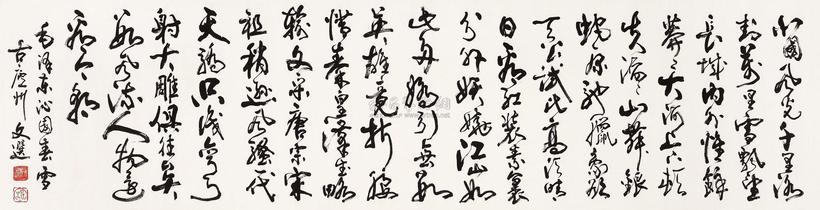 北國風光千里冰
封萬里雪飄望
長城內外惟餘
莽莽大河上下頓
失滔滔山舞銀
蛇原馳臘象欲
與天公試比高須晴
日看紅裝素裹
分外妖嬈江山如
此多嬌引無數
英雄競折腰
惜秦皇漢武略
輸文采唐宗宋
祖稍遜風騷一代
天驕只識彎弓
射大雕俱往矣
數風流人物還
看今朝
毛澤東沁園春雪
古廬州文選